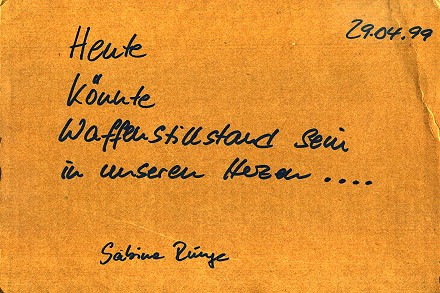 29.04.99
Heute
könnte
Waffenstillstand sein
in unseren Herzen ....
Sabine Runge